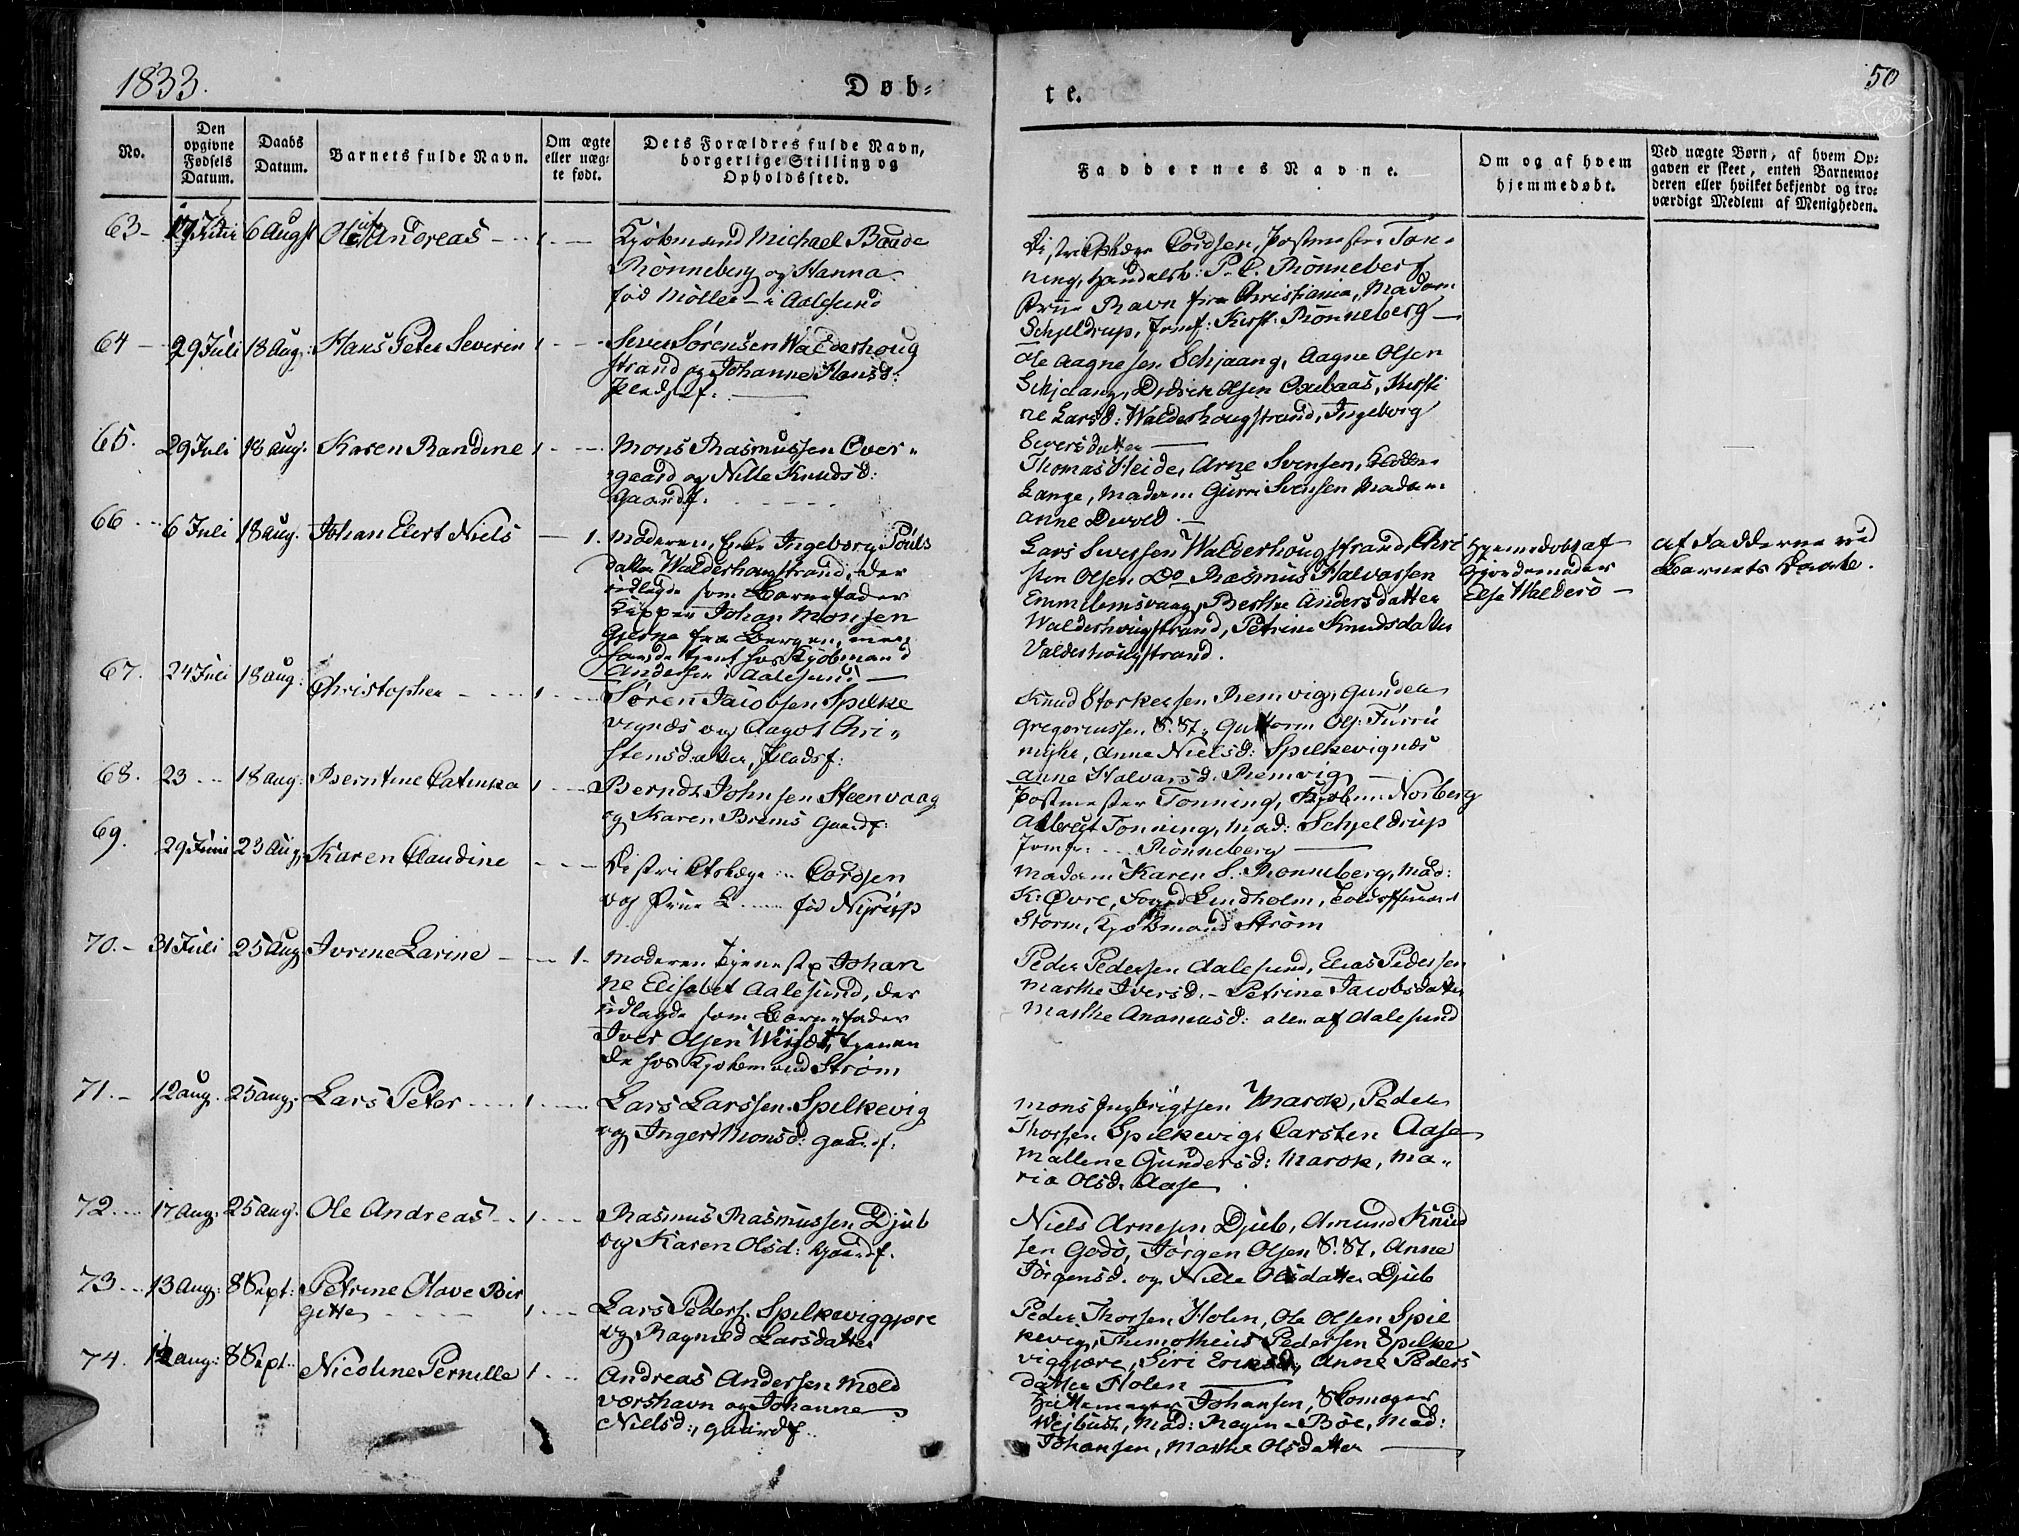 1833.
Døb=
te.
50
No.
Den
opgivne
Fødsels
Datum.
Daabs
Datum.
Barnets fulde Navn.
Om ægte
eller uæg-
te født.
Dets Forældres fulde Navn,
borgerlige Stilling og
Opholdssted.
Faddernes Navne.
Om og af hvem
hjemmedøbt.
Ved uægte Børn, af hvem Op-
gaven er skeet, enten Barnemo-
deren eller hvilket bekjendt og tro-
værdigt Medlem af Menigheden.
63 17 6 Augst Andreas 1
Kjøbmand Michael Baade
Rønneberg og Hanna
fød Møller i Aalesund
Cordsen, Postmester Ton-
ning, Handelsb: P. C. Rønneberg
Ravn fra Christiania, Madam
Schjeldrup, Jomf: Rønneberg
64 29 Juli 18 Aug: Hans Peter Severin 1
Siver Sørensen Walderhoug
strand og Johanne Hansd:
Pladsf.
Ole Aagnesen Schjaang, Aagne Olsen
Schjaang, Didrik Olsen Kirsti
ne Larsd: Walderhougstrand, Ingeborg
Siversdatter
65. 29 Juli 18 Aug. Karen Randine 1
Mons Rasmussen Over-
gaard og Nille Knudsd:
Gaardf.
Thomas Heide, Arne Svensen,
Lange, Madam Gurri Svensen Madam
Anne Devold.
66 6 Juli 18 Aug. Johan Elert Niels 1.
Moderen, Enke Ingeborg Pouls
datter Walderhougstrand, der
udlagde som Barnefader
Johan Monsen
Gjerne fra Bergen,
tjent hos Kjøbmand
Andersen i Aalesund
Lars Siversen Walderhougstrand, Chri
sten Olsen Do Rasmus Halvorsen
Emmlemsvaag, Berthe Andersdatter
Walderhougstrand, Petrine Knudsdatter
Valderhougstrand.
Hjemmedøbt af
Gjordemoder
Else Walderø
af Fadderne ved
Barnets Daab.
67. 24 Juli 18 Aug: Christopher 1
Søren Jacobsen Spilke
vignæs og Aagot Chri-
stensdatter, Pladsf:
Knud Storkersen Remvig, Gunder
Gregoriussen S: St. Guttorm Ols: Furru
myhr, Anne Nielsd: Spilkevignæs
Anne Halvorsd. Remvig
68. 23 18 Aug: Berntine Catinka 1
Bernds Johnsen Steenvaag
og Karen Brems Gaardf:
Postmester Tonning, Kjøbm. Norberg
Albert Tonning, Mad: Schjeldrup
Jomfr: Rønneberg
69. 29 Juni 23 Aug: Karen Claudine
Districtslæge Cordsen
og Frue L fød Nyrup
Madam Karen S. Rønneberg, Mad:
K: Øvre, Lindholm,
Storm, Kjøbmand Strøm
70. 31 Juli 25 Aug: Ivrine Larine 1.
Moderen Tjenestp. Johan
ne Elisabet Aalesund, der
udlagde som Barnefader
Iver Olsen tjenen
de hos Kjøbmand Strøm
Peder Pedersen Aalesund, Elias Pedersen
Marthe Iversd. Petrine Jacobsdatter
Marthe Ananiasd: alle af Aalesund
71. 12 Aug. 25 Aug: Lars Peter 1
Lars Larssen Spilkevig
og Inger Monsd: Gaardf:
Mons Ingbrigtsen Marok, Peder
Thorsen Spilkevig, Carsten Aase
Mallene Gundersd: Marok, Ma-
ria Olsd. Aase
72. 17 Aug. 25 Aug. Ole Andreas 1
Rasmus Rasmussen Djub
og Karen Olsd: Gaardf.
Niels Arnesen Djub, Amund Knud
sen Godø, Jørgen Olsen S. St. Anne
Jørgensd. og Nille Olsdatter Djub
73. 13 Aug: 8 Sept: Petrine Olave Bir
gitte 1
Lars Peders: Spilkeviggjære
og Ragnild Larsdatter
Peder Thorsen Holen, Ole Olsen Spil
kevig, Thimotheus Pedersen Spilke
viggjære, Siri Anne Peders
datter Holen
74. 12 Aug: 8 Sept. Nicoline Pernille 1
Andreas Andersen Mold
værshavn og Johanne
Nielsd:, Gaardf.
Hattemager Johansen, Skomager
Wejbust, Mad: Bøe, Mad:
Johansen, Marthe Olsdatter